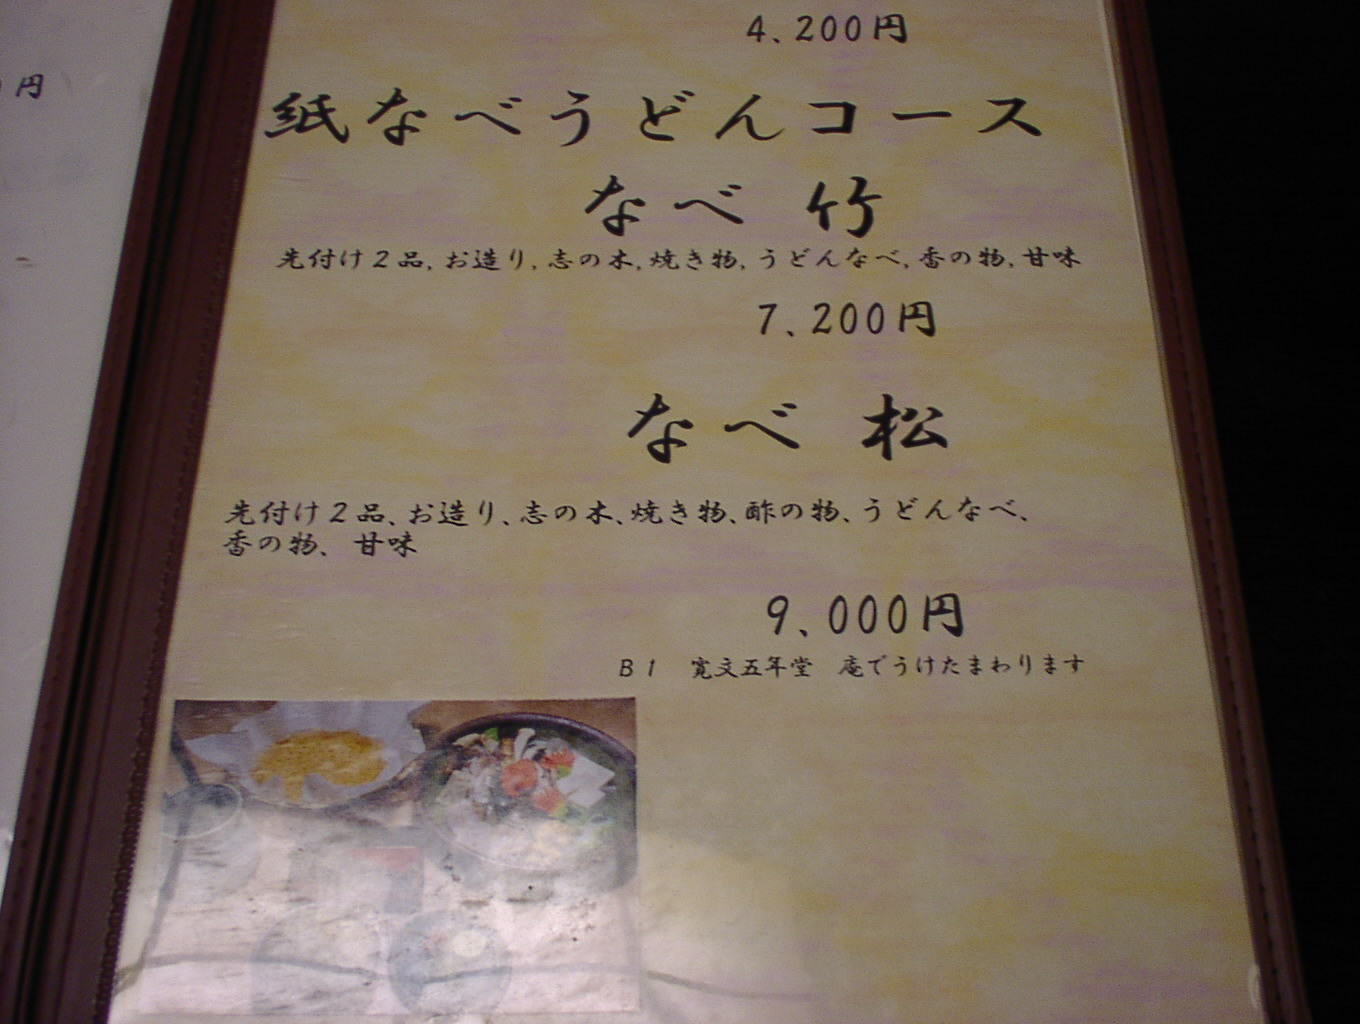 4、200円
円
紙なべうどんコース
なべ 竹
先付け2品,お造り,志の木,焼き物,うどんなべ,香の物,甘味
7、200円
なべ 松
先付け2品、お造り、志の木、焼き物、酢の物、うどんなべ、
香の物、甘味
9、000円
B1 寛文五年堂 庵でうけたまわります